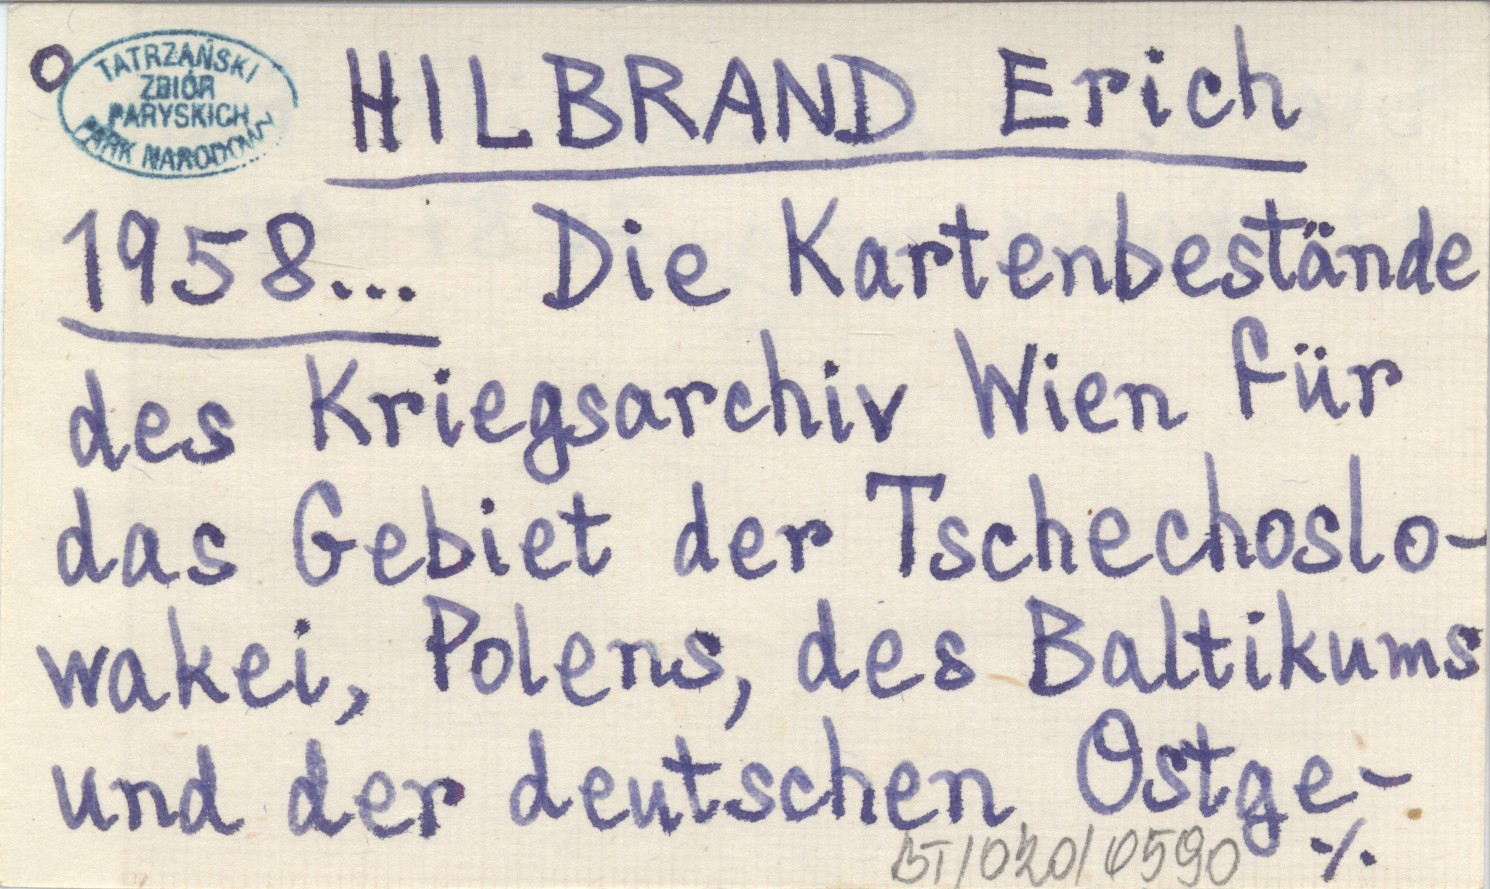 TATRZAŃSKI
ZBIÓR
PARYSKICH
PARK NARODOWY
HILBRAND Erich
1958... Die Kartenbestände
des Kriegsarchiv Wien für
das Gebiet der Tschechoslo-
wakei, Polens, des Baltikums
und der deutschen Ostge-
BT/020/0590 ./.